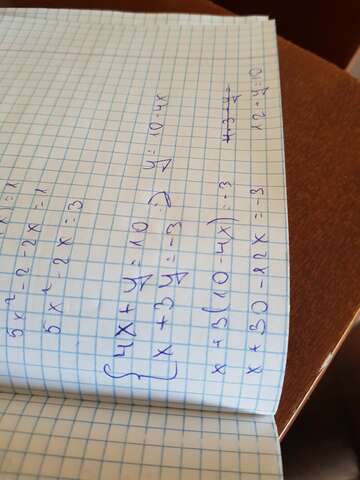 5x² - 2 - 2x = 1
5x² - 2x = 3
{ 4x + y = 10
x + 3y = -3 => y = 10 - 4x
x + 3(10 - 4x) = -3
x + 30 - 12x = -3 12 + y = 10